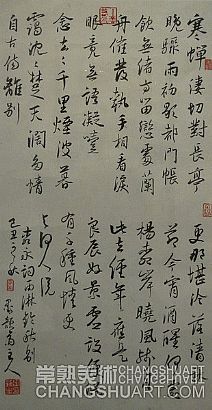 寒蟬淒切對長亭
晚驟雨初歇都門帳
飲無緒方留戀處蘭
舟催發執手相看淚
眼竟無語凝噎
念去去千里煙波暮
靄沉沉楚天闊多情
自古傷離別
更那堪冷落清秋
節今宵酒醒何處
楊柳岸曉風殘月
此去經年應是
良辰好景虛設便縱
有千種風情更
與何人說
柳永詞雨淋鈴秋別
己丑
主人
常熟美术
CHANGSHUART.COM